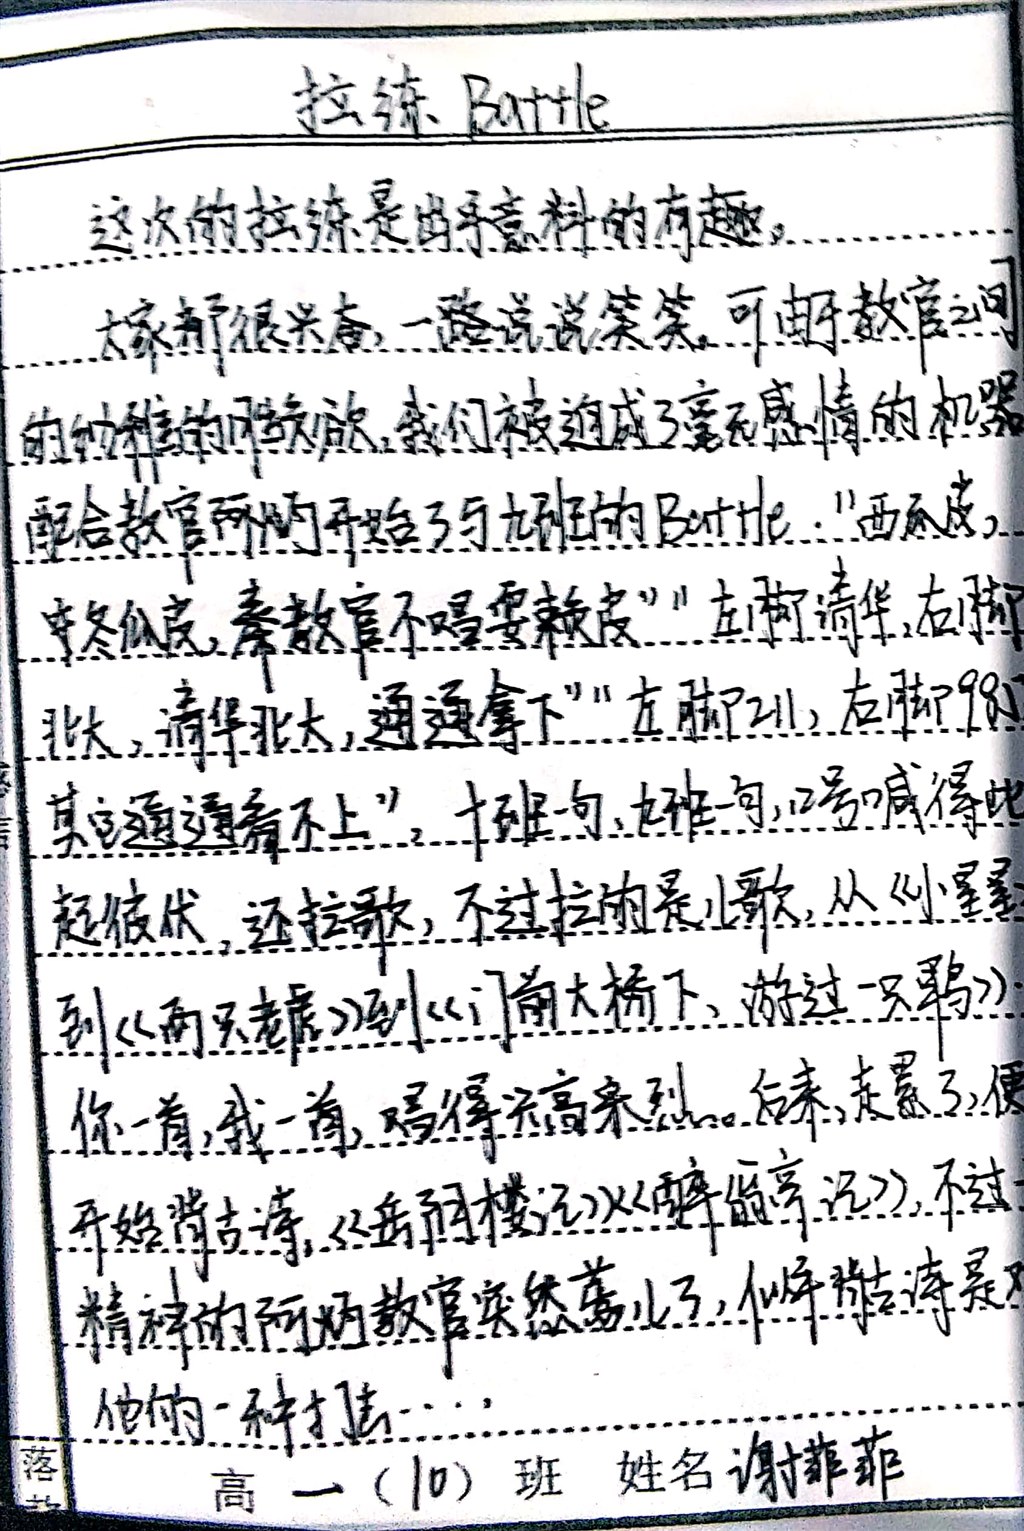 拉练 Battle
这次的拉练是出乎意料的有趣。
大家都很兴奋,一路说说笑笑。可由于教官之间
的幼稚的胜欲,我们被迫成了毫无感情的机器
配合教官阿炳开始了与九班的Battle."西瓜皮,
冬瓜皮,秦教官不唱耍赖皮""左脚清华,右脚
北大,清华北大,通通拿下""左脚211,右脚985
其它通通看不上"。十班一句,九班一句,口号喊得此
起彼伏,还拉歌,不过拉的是儿歌,从《小星星
到《两只老虎》到《门前大桥下、游过一只鸭》
你一首,我一首,唱得兴高采烈...。后来,走累了,便
开始背古诗,《岳阳楼记》《醉翁亭记》,不过
精神的阿炳教官突然蔫儿了,似乎背古诗是对
他的一种打击....
落
高一(10)班 姓名 谢菲菲